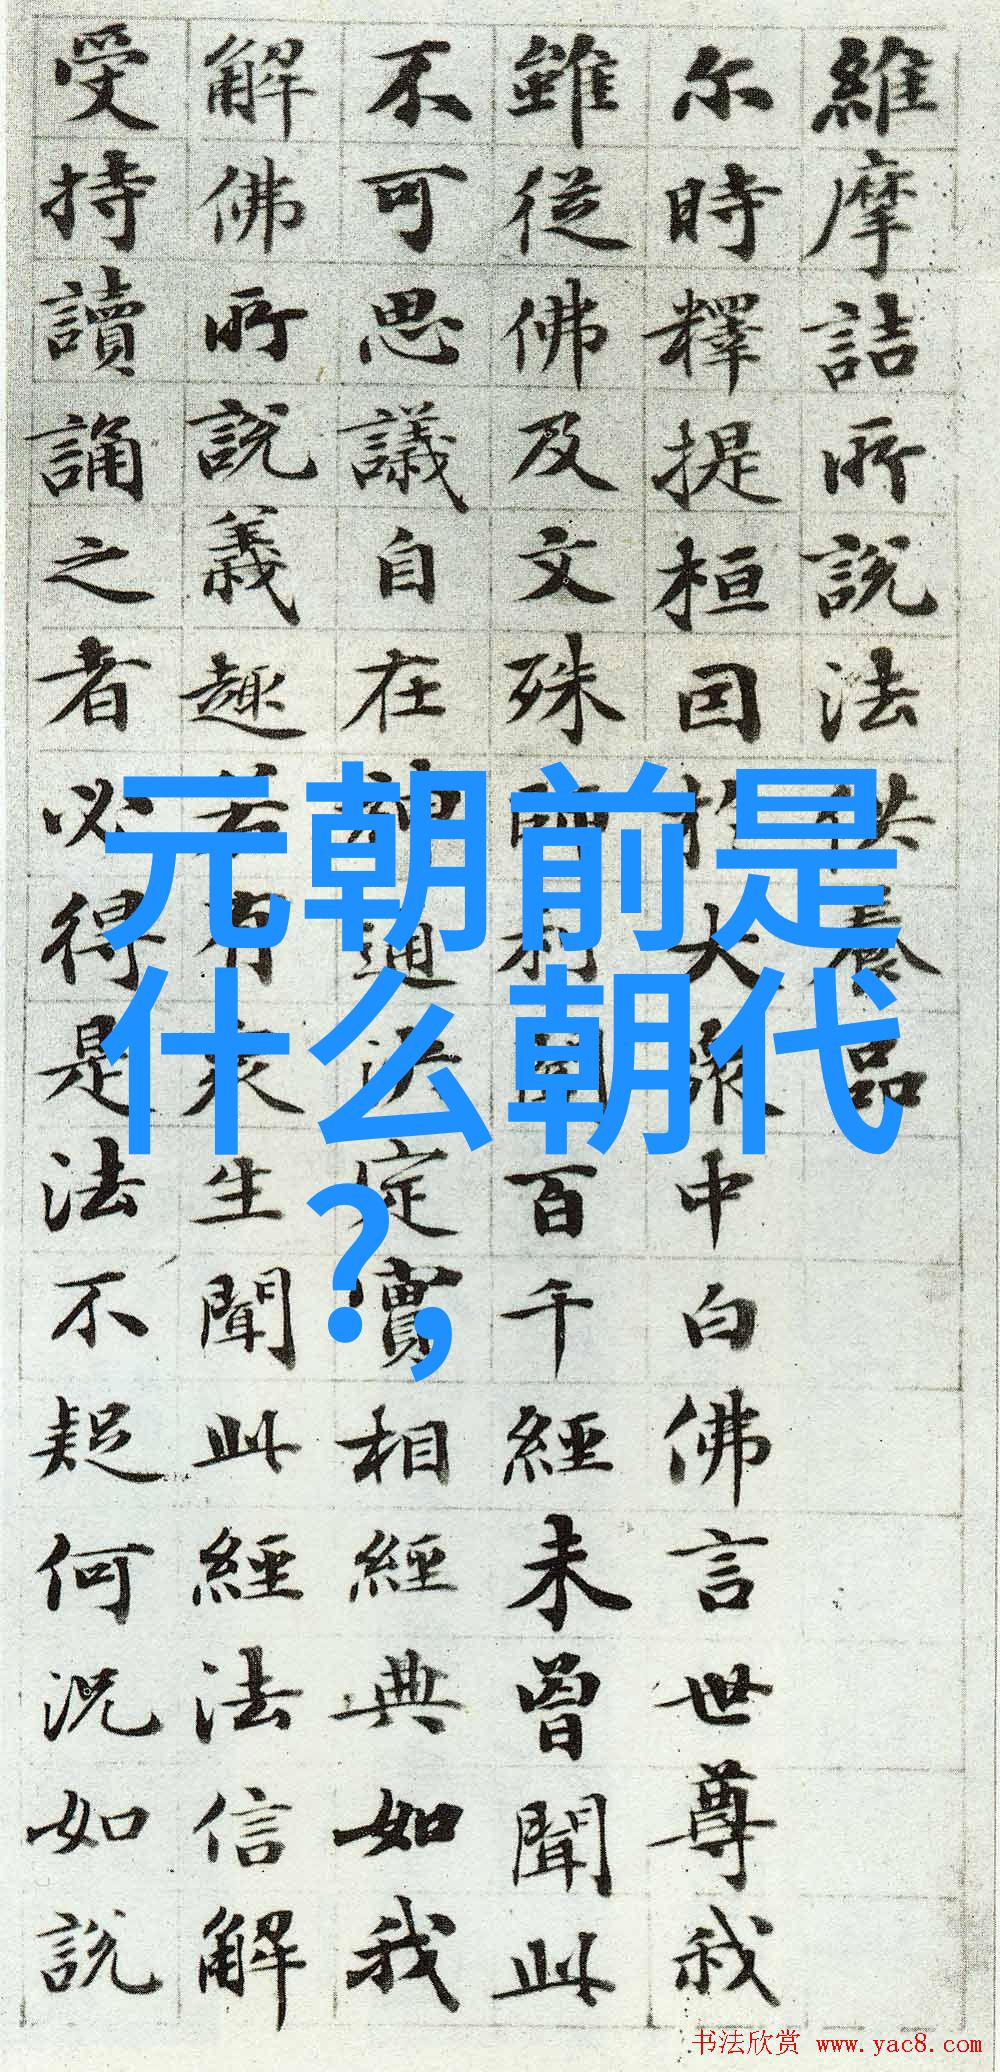 維摩詰所說法供養品
尔時釋提桓因於大眾中白佛言世尊我
雖從佛及文殊師利聞百千經未曾聞此
不可思議自在神通決定實相經典如我
解佛所說義趣若有衆生聞此經法信解
受持讀誦之者必得是法不疑何況如說
元朝前是
什么朝代
?,
书法欣赏 www.yac8.com